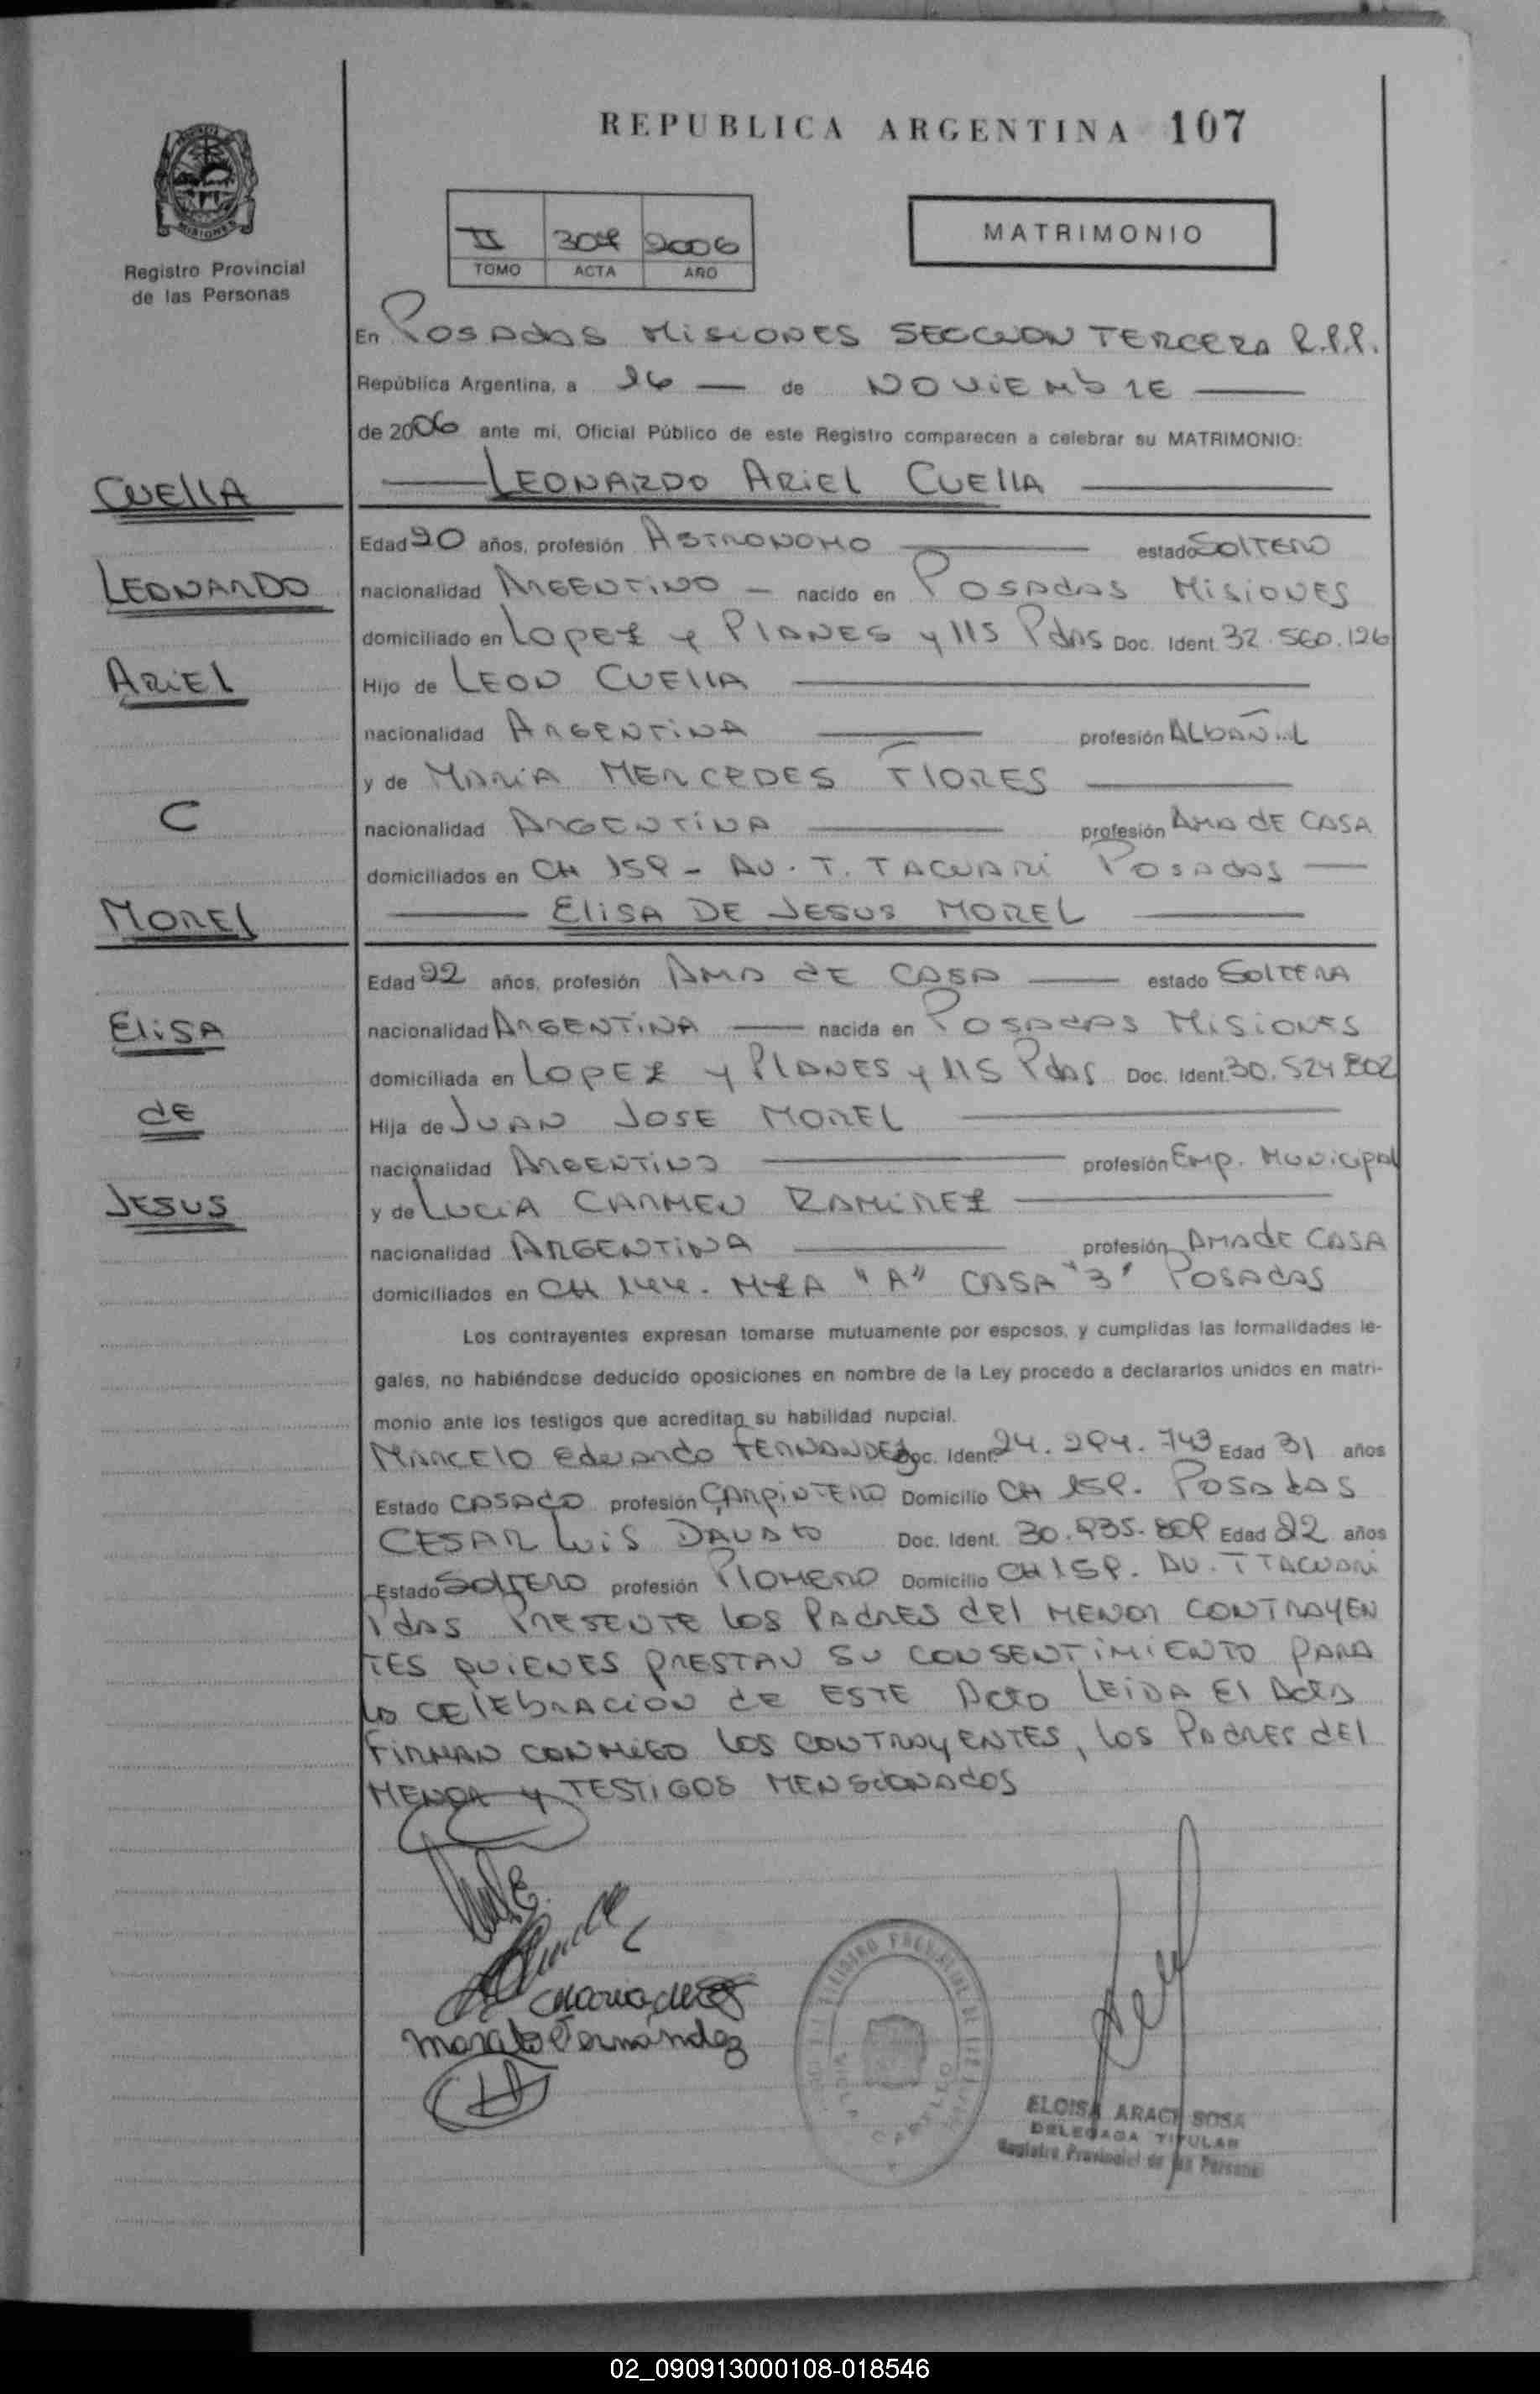 REPUBLICA ARGENTINA 107
MISIONES
Registro Provincial
de las Personas
II 2006
TOMO ACTA AÑO
MATRIMONIO
En POSADAS MISIONES SECCION TERCERA R.P.P.
República Argentina, a de NOVIEMbRE
de 2006 ante mi, Oficial Público de este Registro comparecen a celebrar su MATRIMONIO:
LEONARDO ARIEL CUEllA
CUEllA
LEONARDO
ARIEL
C
MOREl
ELISA
dE
JESUS
Edad 20 años, profesión ASTRONOMO estado SOLTERO
nacionalidad ARGENTINO nacido en POSADAS MISIONES
domiciliado en LOPEZ y PLANES y 115 Pdas Doc. Ident. 32.560.126
Hijo de LEON CUEllA
nacionalidad ARGENTINA profesión ALbAÑiL
y de MARIA MERCEDES FLORES
nacionalidad ARGENTINA profesión AMA dE CASA
domiciliados en CH 159 - AV. T. TACUARI POSADAS
ELISA DE JESUS MOREL
Edad 22 años, profesión AMA dE CASA estado SOLTERA
nacionalidad ARGENTINA nacida en POSADAS MISIONES
domiciliada en LOPEZ y PLANES y 115 Pdas Doc. Ident. 30.524.802
Hija de JUAN JOSE MOREL
nacionalidad ARGENTINO profesión Emp. MUNICIPAL
y de LUCIA CARMEN RAMIREZ
nacionalidad ARGENTINA profesión AMA dE CASA
domiciliados en CH 144. MZA "A" CASA "3" POSADAS
Los contrayentes expresan tomarse mutuamente por esposos, y cumplidas las formalidades le-
gales, no habiéndose deducido oposiciones en nombre de la Ley procedo a declararlos unidos en matri-
monio ante los testigos que acreditan su habilidad nupcial.
MARCELO EDUARDO FERNANDEZ Doc. Ident. 24.294.743 Edad 31 años
Estado CASADO profesión CARPINTERO Domicilio CH 159. POSADAS
CESAR LUIS Doc. Ident. 30.935.809 Edad 22 años
Estado SOLTERO profesión PLOMERO Domicilio CH 159. AV. T TACUARI
Pdas PRESENTE LOS PADRES dEl MENOR CONTRAYEN
TES QUIENES PRESTAN SU CONSENTIMIENTO PARA
LA CELEbRACION dE ESTE ACTO LEIDA El ACTA
FIRMAN CONMIGO LOS CONTRAYENTES, LOS PADRES dEl
MENOR Y TESTIGOS MENSIONADOS
Marcelo Fernández
ELOISA ARACY SOSA
DELEGADA TITULAR
Registro Provincial de las Personas
02_090913000108-018546